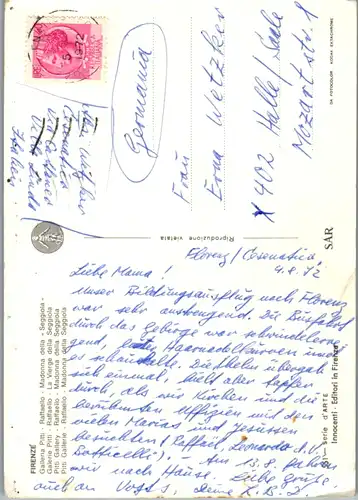 Florenz/Cesenatico
4.8.72
Liebe Mama!
Unser Bildungsausflug nach Florenz
war sehr anstrengend. Die Busfahrt
durch das Gebirge war schwindelerre-
gend, Haarnadelkurven und
es schaukelte. Die Thekn übergab
sich einmal, hielt aber tapfer
durch, als wir Kirchen und die
berühmten Uffizien mit den
vielen Marias und Jesussen
besichteten (Raffael, Leonardo d. V.
Botticelli). – Am 13.8. fahren
wir nach Hause. Liebe Grüße
auch an Vogts, deine
Germania
Frau
Erna Wetzker
X 402 Halle/Saale
Mozartstr. 1
Italien
5 1972
FIRENZE
Galleria Pitti - Raffaello - Madonna della Seggiola
Galerie Pitti - Raffaello - La Vierge della Seggiola
Pitti Gallery - Raffaello - Madonna della Seggiola
Pitti Gallerie - Raffaello - Madonna della Seggiola
Riproduzione vietata
SAR
DA FOTOCOLOR KODAK EKTACHROME
Serie d'ARTE
Innocenti Editori in Firenze